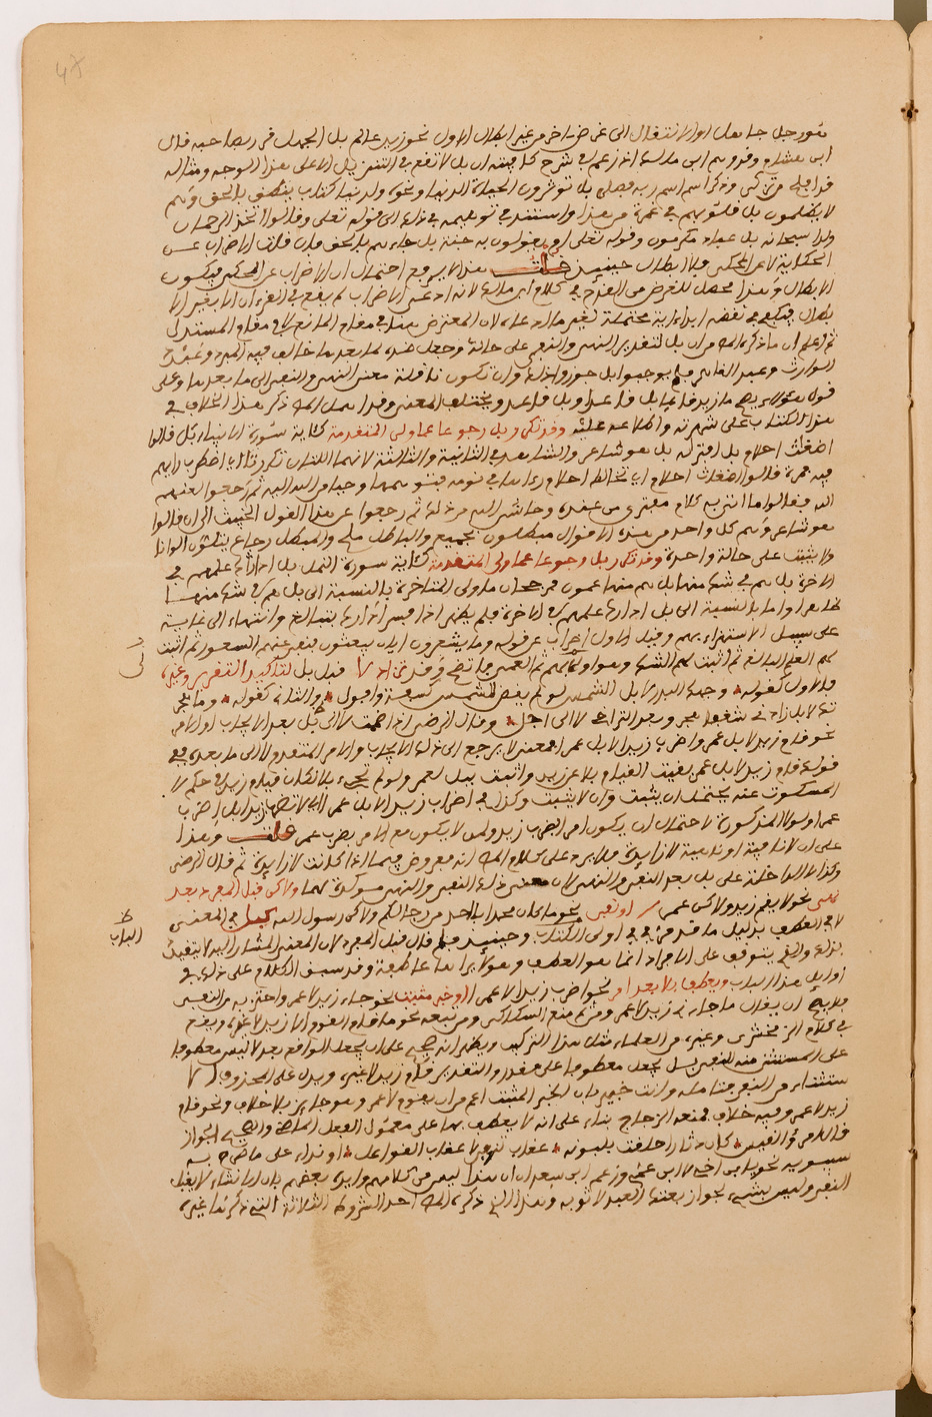 نحو رجل جاهل او الانتقال الى غرض اخر من غير ابطال الاول نحو زيد عالم بل الجهل في صاحبه قال
ابن هشام ووهم ابن مالك اذ زعم في شرح كافيته ان بل لا تقع في التنزيل الا على هذا الوجه ومثاله
قد افلح من تزكى وذكر اسم ربه فصلى بل توثرون الحياة الدنيا ونحو ولدينا كتاب ينطق بالحق وهم
لا يظلمون بل قلوبهم في غمرة من هذا واستند في توهيمه في ذلك الى قوله تعلى وقالوا اتخذ الرحمان
ولدا سبحانه بل عباد مكرمون وقوله تعلى ام يقولون به جنة بل جاءهم بالحق فان قلت الاضراب عن
الحكاية لا عن المحكي فلا ابطال حينيذ قلت هذا لا يرفع احتمال ان الاضراب عن المحكي فيكون
الابطال وهذا محصل للغرض من القدح في كلام ابن مالك لانه ادعى ان الاضراب لم يقع في القرءان الا بغير الا
بطال فيكفي في نقضه ايراد اية محتملة لغير ما ادعاه لان المعترض هنا في مقام المانع لا في مقام المستدل
ثم اعلم ان ما ذكره المص من ان بل لتقدير النهي والنفي على حاله وجعل ضده لما بعد ما خالف فيه المبرد وعبد
الوارث وعبد القاهر فلم يوجبوا بل جوزوا ذلك وان تكون ناقلة معنى النهي والنفي الى ما بعدها وعلى
قول هؤلاء يصح ما زيد قائما بل قاعدا وبل قاعد ويختلف المعنى وقد اهمل المص ذكر هذا الخلاف في
هذا الكتاب على شهرته واطلاعه عليه وقد تكرر بل رجوعا عما ولي المتقدمة كاية سورة الانبياء بل قالوا
اضغاث احلام بل افتراه بل هو شاعر والشاهد في الثانية والثالثة لانهما اللتان تكررتا اي اضطرب رايهم
فيه مرة قالوا اضغاث احلام اي تخاليط احلام رءاها في نومه فيتوهمها وحيا من الله اليه ثم رجعوا عنه
الى فقالوا ما اتى به كلام مفترى من عنده وحاشى اليه من ذلك ثم رجعوا عن هذا القول الخبيث الى ان قالوا
هو شاعر وهم كل واحد من هذه الاقوال مبطلون بجميع والباطل ملجلج والمبطل رجاع يتلون الوانا
ولا يثبت على حالة واحدة وقد تكرر بل رجوعا عما ولي المتقدمة كاية سورة النمل بل ادارك علمهم في
الاخرة بل هم في شك منها بل هم منها عمون فرجحان ما ولي المتاخرة بالنسبة الى بل هم في شك منها
ظاهر واما بالنسبة الى بل ادارك علمهم في الاخرة فلم يظهر اذا فسر ادارك بتبالغ وانتهاء الى غاية
على سبيل الاستهزاء بهم وقيل الاول اضراب عن قوله وما يشعرون ايان يبعثون فنفى عنهم الشعور ثم اثبت
لهم العلم البالغ ثم اثبت لهم الشك وهو اولى بهم ثم العمى فاتضح وقد تزاد لا قبل بل لتاكيد التقرير وغيره
فالاول كقوله وجهك البدر لا بل الشمس لو لم يقض للشمس كسفة وافول والثاني كقوله وما هجر
تك لا بل زادني شغفا هجر وبعد التراخي لا الى اجل وقال الرضي اذا ضممت لا الى بل بعد الايجاب او الامر
نحو قام زيد لا بل عمرو واضرب زيدا لا بل عمرا فمعنى لا يرجع الى ذلك الايجاب والامر المتقدم لا الى ما بعد بل في
قولك قام زيد لا بل عمرو نفيت القيام بلا عن زيد واثبته ببل لعمرو ولو لم تجيء بلا لكان قيام زيد في حكم لا
المسكوت عنه يحتمل ان يثبت وان لا يثبت وكذا في اضرب زيدا لا بل عمرا اي لا تضرب زيدا بل اضرب
عمرا ولولا المذكورة لاحتمل ان يكون امرا بضرب زيد وان لا يكون مع الامر بضرب عمرو قلت وهذا
على ان لا نافية او ناهية لا زايدة فلا يرد على كلام المص انه مفروض فيما اذا كانت لا زايدة ثم قال الرضي
وكذا لا الداخلة على بل بعد النفي والنهي لان معنى ذلك النفي والنهي موكدة لهما ولاكن قبل المفرد بعد
نهي نحو لا يقم زيد ولاكن عمرو او نفي نحو ما كان محمد ابا احد من رجالكم ولاكن رسول الله كبل في المعنى
لا في العطف بدليل ما قد مر في اول الكتاب وحينيذ فلم قال قبل المفرد لان المعنى المشار اليه لا يتقيد
بذلك والذي يتوقف على الافراد انما هو العطف وهو لا يراها عاطفة وقد سبق الكلام على ذلك في
اوايل هذا الباب ويعطف بلا بعد امر نحو اضرب زيدا لا عمرا او خبر مثبت نحو جاء زيد لا عمرو واحترز به من النفي
فلا يصح ان يقال ما جاءني زيد لا عمرو ومن ثم منع السكاكي ومن تبعه نحو ما قام القوم الا زيد لا عمرو ويقع
في كلام الزمخشري وغيره من العلماء مثل هذا التركيب ويظهر انه صحيح على ان يجعل الواقع بعد لا ليس معطوفا
على المستثنى منه للنفي بل يجعل معطوفا على مقدر والتقدير قام زيد لا غيره ويدل على المحذوف الا
ستثناء من النفي فتامله وانت خبير بان الخبر المثبت اعم من ان يقوم لا عمرو وهو جايز بلا خلاف ونحو قام
زيد لا عمرو وفيه خلاف فمنعه الزجاج بناء على انه لا يعطف بها على معمول الفعل الماضي والصحيح الجواز
قال امرؤ القيس كان دثارا حلقت بلبونه عقاب تنوفى لا عقاب القواعل او نداء على ما صرح به
سيبويه نحو يابن اخي لا ابن عمي وزعم ابن سعدان ان هذا ليس من كلامهم وايده بعضهم بان الانشاء لا يقبل
النفي وليس بشيء بجواز بعتك العبد لا ثوبه وهذا الذي ذكره المص احد الشروط الثلاثة التي ذكرها غيره